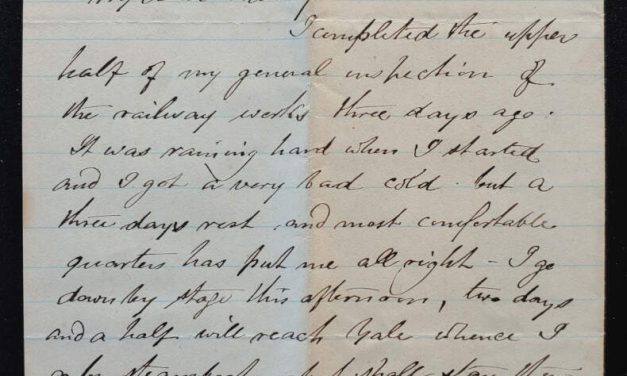 I completed the upper
half of my general inspection of
the railway works three days ago.
It was raining hard when I started
and I got a very bad cold. but a
three days rest and most comfortable
quarters has put me all right - I go
down by stage this afternoon, two days
and a half will reach Yale whence I
by steamboat I shall stay